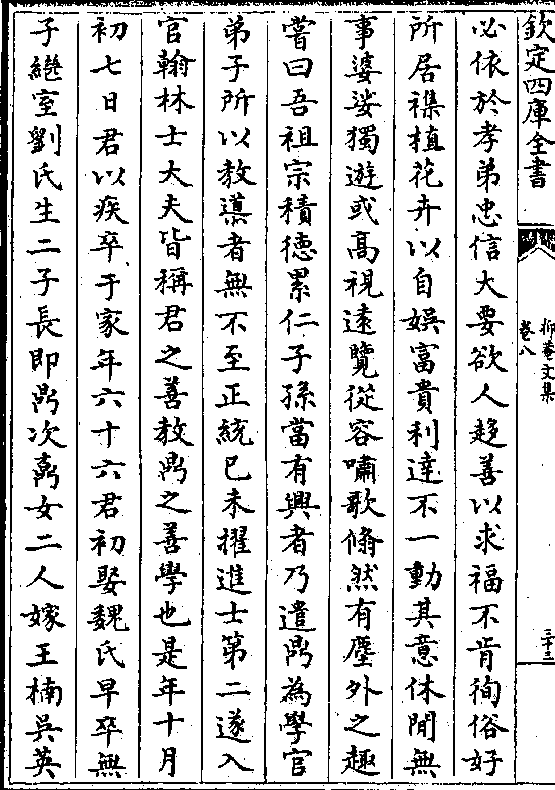 欽定四庫全書
抑菴文集
卷八
三十三
必依於孝弟忠信大要欲人趍善以求福不肯徇俗好
所居襍植花卉以自娛富貴利達不一動其意休閒無
事婆娑獨遊或髙視遠覽從容嘯歌翛然有塵外之趣
嘗曰吾祖宗積徳累仁子孫當有興者乃遣鼎為學官
弟子所以教䕫者無不至正統已未擢進士第二遂入
官翰林士大夫皆稱君之善教鼎之善學也是年十月
初七日君以疾卒于家年六十六君初娶魏氏早卒無
子繼室劉氏生二子長即鼎次鼒女二人嫁王楠吳英